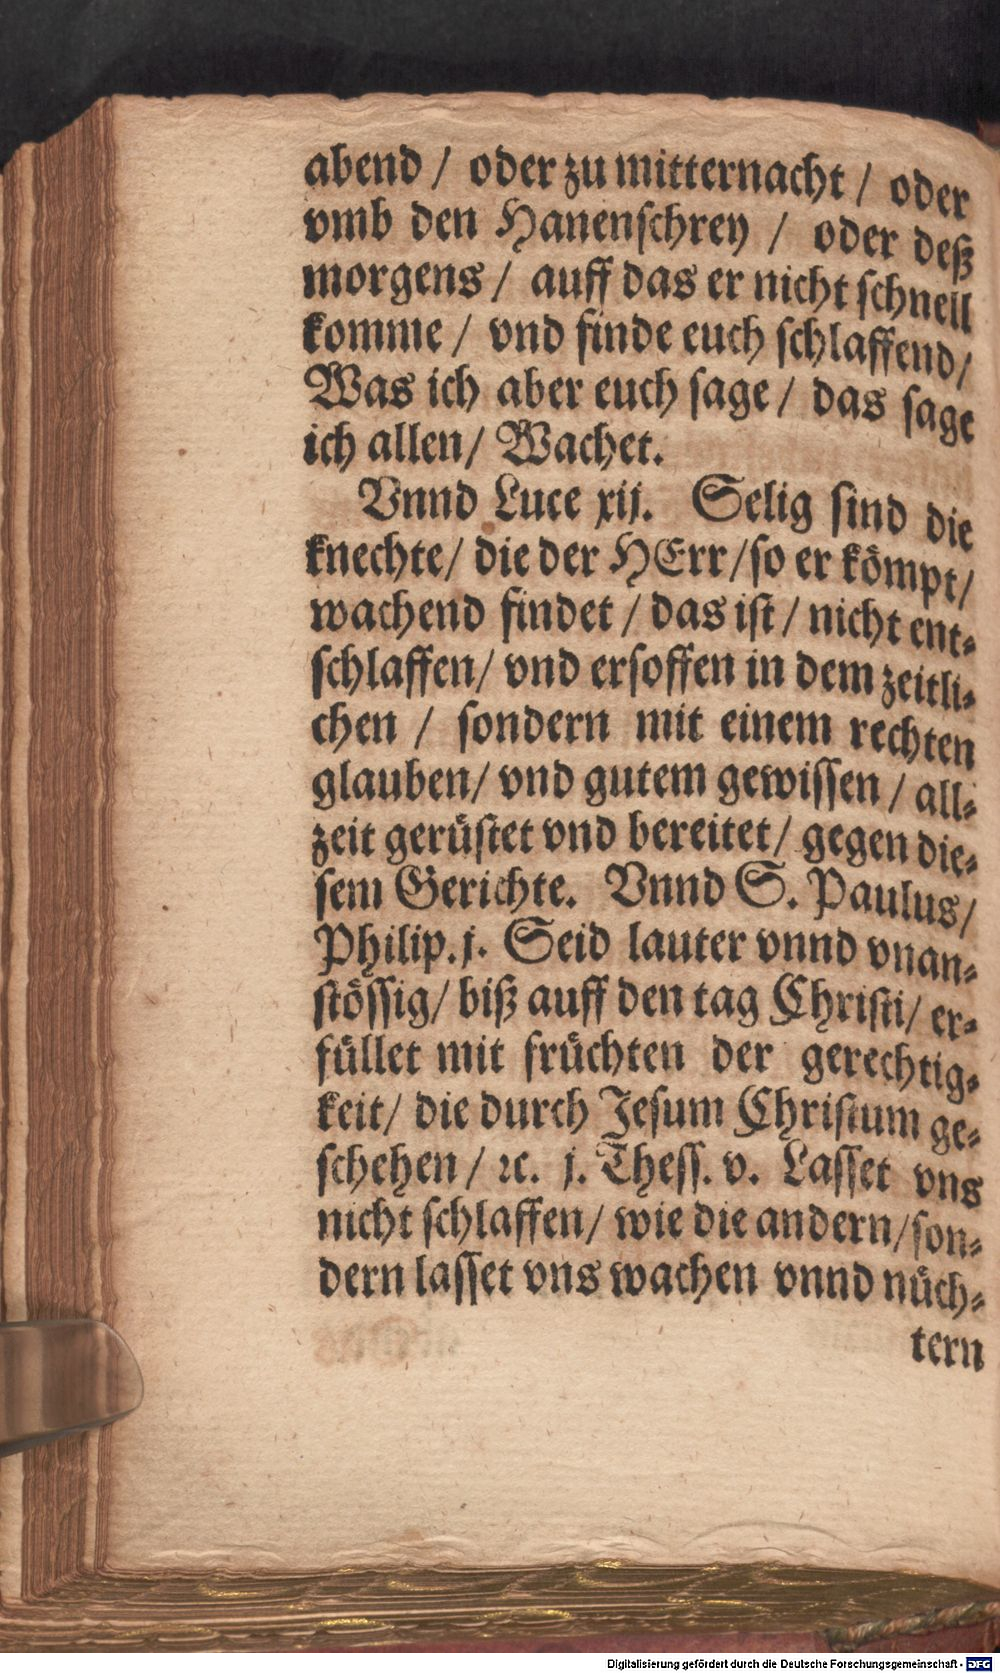 abend / oder zu mitternacht / oder
vmb den Hanenschrey / oder deß
morgens / auff das er nicht schnell
komme / vnd finde euch schlaffend/
Was ich aber euch sage / das sage
ich allen/ Wachet.
Vnnd Luce xij. Selig sind die
knechte/ die der HErr/so er kömpt/
wachend findet / das ist / nicht ent-
schlaffen/ vnd ersoffen in dem zeitli-
chen / sondern mit einem rechten
glauben/ vnd gutem gewissen / all-
zeit gerüstet vnd bereitet/ gegen die-
sem Gerichte. Vnnd S. Paulus/
Philip. j. Seid lauter vnnd vnan-
stössig/ biß auff den tag Christi/ er-
füllet mit früchten der gerechtig-
keit/ die durch Jesum Christum ge-
schehen / ꝛc. j. Thess. v. Lasset vns
nicht schlaffen/ wie die andern/son-
dern lasset vns wachen vnnd nüch-
tern
Digitalisierung gefördert durch die Deutsche Forschungsgemeinschaft - DFG